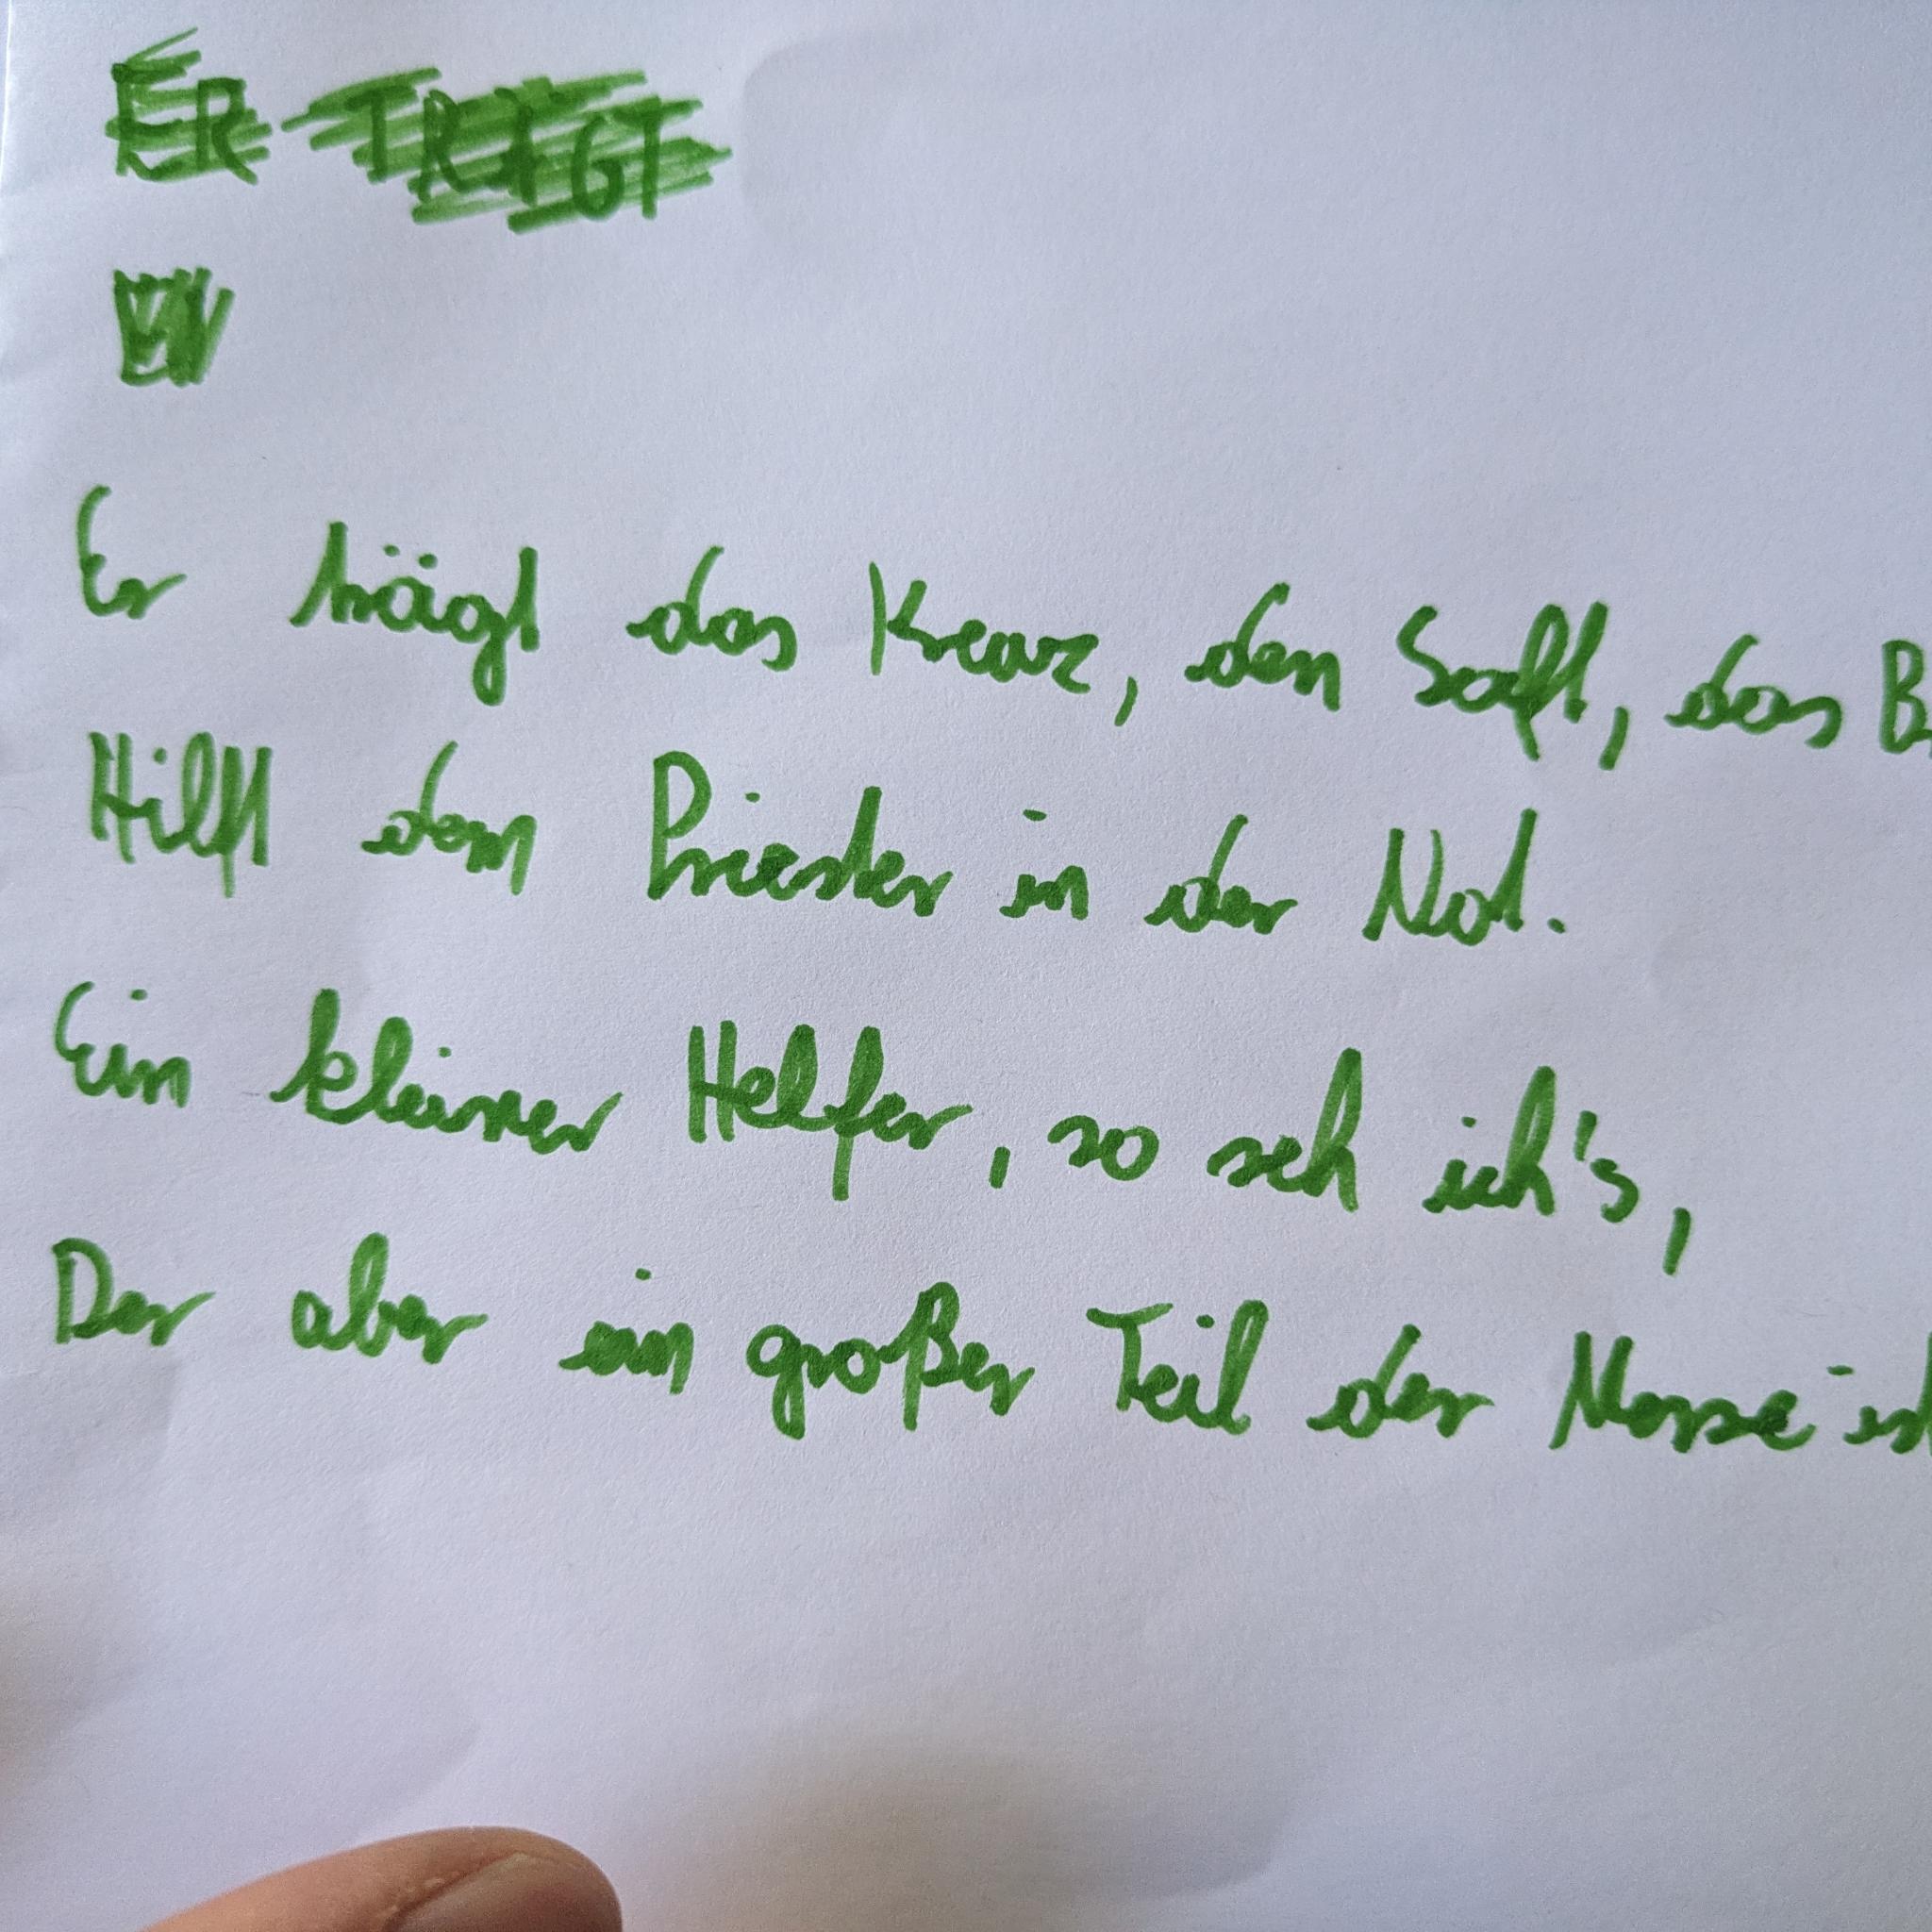 ER TRÄGT
Er trägt das Kreuz, den Saft, das B
Hilft dem Priester in der Not.
Ein kleiner Helfer, so seh ich's,
Der aber ein großer Teil der Messe ist